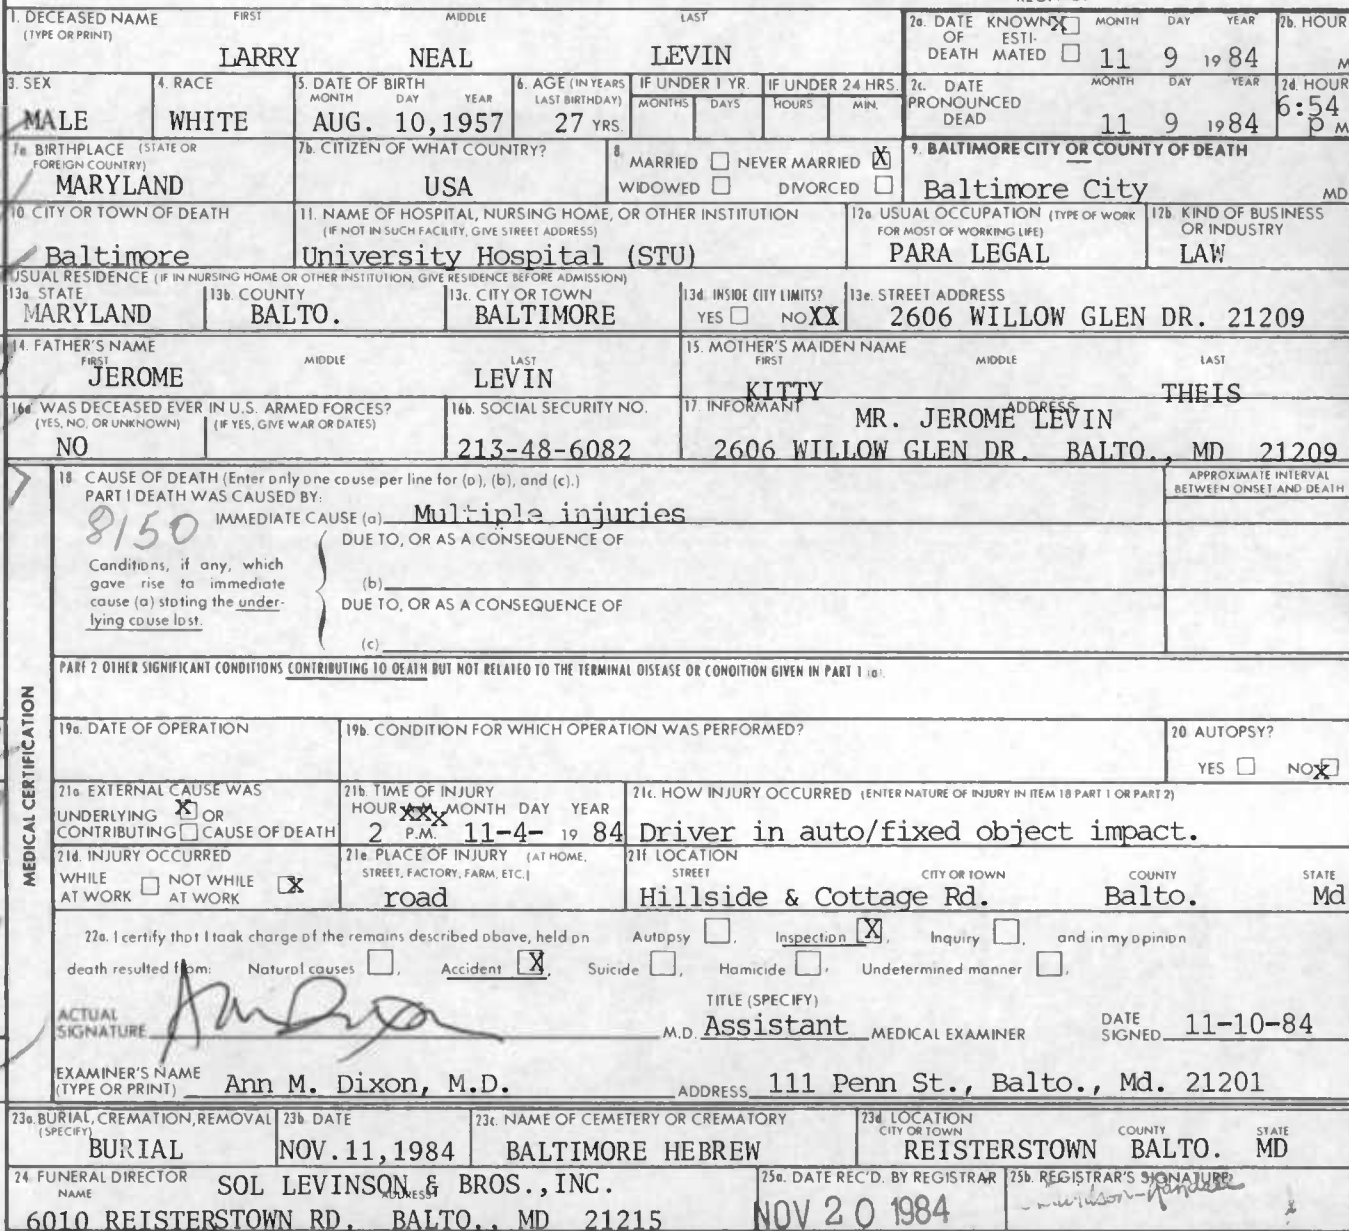 1. DECEASED NAME FIRST MIDDLE LAST
(TYPE OR PRINT)
LARRY NEAL LEVIN
2a. DATE KNOWN X MONTH DAY YEAR
OF ESTI-
DEATH MATED 11 9 1984
2b. HOUR
M
3. SEX
MALE
4. RACE
WHITE
5. DATE OF BIRTH
MONTH DAY YEAR
AUG. 10,1957
6. AGE (IN YEARS
LAST BIRTHDAY)
27 YRS.
IF UNDER 1 YR.
MONTHS DAYS
IF UNDER 24 HRS.
HOURS MIN.
2c. DATE MONTH DAY YEAR
PRONOUNCED
DEAD 11 9 1984
2d. HOUR
6:54
P M
7a BIRTHPLACE (STATE OR
FOREIGN COUNTRY)
MARYLAND
7b. CITIZEN OF WHAT COUNTRY?
USA
8
MARRIED NEVER MARRIED X
WIDOWED DIVORCED
9. BALTIMORE CITY OR COUNTY OF DEATH
Baltimore City MD
10 CITY OR TOWN OF DEATH
Baltimore
11. NAME OF HOSPITAL, NURSING HOME, OR OTHER INSTITUTION
(IF NOT IN SUCH FACILITY, GIVE STREET ADDRESS)
University Hospital (STU)
12a USUAL OCCUPATION (TYPE OF WORK
FOR MOST OF WORKING LIFE)
PARA LEGAL
12b. KIND OF BUSINESS
OR INDUSTRY
LAW
USUAL RESIDENCE (IF IN NURSING HOME OR OTHER INSTITUTION, GIVE RESIDENCE BEFORE ADMISSION)
13a STATE
MARYLAND
13b. COUNTY
BALTO.
13c. CITY OR TOWN
BALTIMORE
13d INSIDE CITY LIMITS?
YES NO XX
13e. STREET ADDRESS
2606 WILLOW GLEN DR. 21209
14. FATHER'S NAME
FIRST MIDDLE LAST
JEROME LEVIN
15. MOTHER'S MAIDEN NAME
FIRST MIDDLE LAST
KITTY THEIS
16a WAS DECEASED EVER IN U.S. ARMED FORCES?
(YES, NO, OR UNKNOWN) (IF YES, GIVE WAR OR DATES)
NO
16b. SOCIAL SECURITY NO.
213-48-6082
17. INFORMANT ADDRESS
MR. JEROME LEVIN
2606 WILLOW GLEN DR. BALTO., MD 21209
MEDICAL CERTIFICATION
18 CAUSE OF DEATH (Enter only one cause per line for (a), (b), and (c).)
PART I DEATH WAS CAUSED BY:
APPROXIMATE INTERVAL
BETWEEN ONSET AND DEATH
8150
IMMEDIATE CAUSE (a) Multiple injuries
DUE TO, OR AS A CONSEQUENCE OF
Conditions, if any, which
gave rise to immediate
cause (a) stating the under-
lying cause last.
(b)
DUE TO, OR AS A CONSEQUENCE OF
(c)
PART 2 OTHER SIGNIFICANT CONDITIONS CONTRIBUTING TO DEATH BUT NOT RELATED TO THE TERMINAL DISEASE OR CONDITION GIVEN IN PART 1 (a).
19a. DATE OF OPERATION
19b. CONDITION FOR WHICH OPERATION WAS PERFORMED?
20 AUTOPSY?
YES NO X
21a EXTERNAL CAUSE WAS
UNDERLYING X OR
CONTRIBUTING CAUSE OF DEATH
21b TIME OF INJURY
HOUR XXX MONTH DAY YEAR
2 P.M. 11-4- 19 84
21c. HOW INJURY OCCURRED (ENTER NATURE OF INJURY IN ITEM 18 PART 1 OR PART 2)
Driver in auto/fixed object impact.
21d. INJURY OCCURRED
WHILE NOT WHILE X
AT WORK AT WORK
21e PLACE OF INJURY (AT HOME,
STREET, FACTORY, FARM, ETC.)
road
21f LOCATION
STREET CITY OR TOWN COUNTY STATE
Hillside & Cottage Rd. Balto. Md
22a. I certify that I took charge of the remains described above, held on Autopsy , Inspection X , Inquiry , and in my opinion
death resulted from: Natural causes , Accident X , Suicide , Homicide , Undetermined manner .
ACTUAL
SIGNATURE Ann Dixon M.D.
TITLE (SPECIFY)
Assistant MEDICAL EXAMINER
DATE
SIGNED 11-10-84
EXAMINER'S NAME
(TYPE OR PRINT) Ann M. Dixon, M.D. ADDRESS 111 Penn St., Balto., Md. 21201
23a. BURIAL, CREMATION, REMOVAL
(SPECIFY)
BURIAL
23b DATE
NOV.11,1984
23c. NAME OF CEMETERY OR CREMATORY
BALTIMORE HEBREW
23d LOCATION
CITY OR TOWN COUNTY STATE
REISTERSTOWN BALTO. MD
24 FUNERAL DIRECTOR
NAME ADDRESS
SOL LEVINSON & BROS.,INC.
6010 REISTERSTOWN RD. BALTO., MD 21215
25a. DATE REC'D. BY REGISTRAR
NOV 20 1984
25b. REGISTRAR'S SIGNATURE